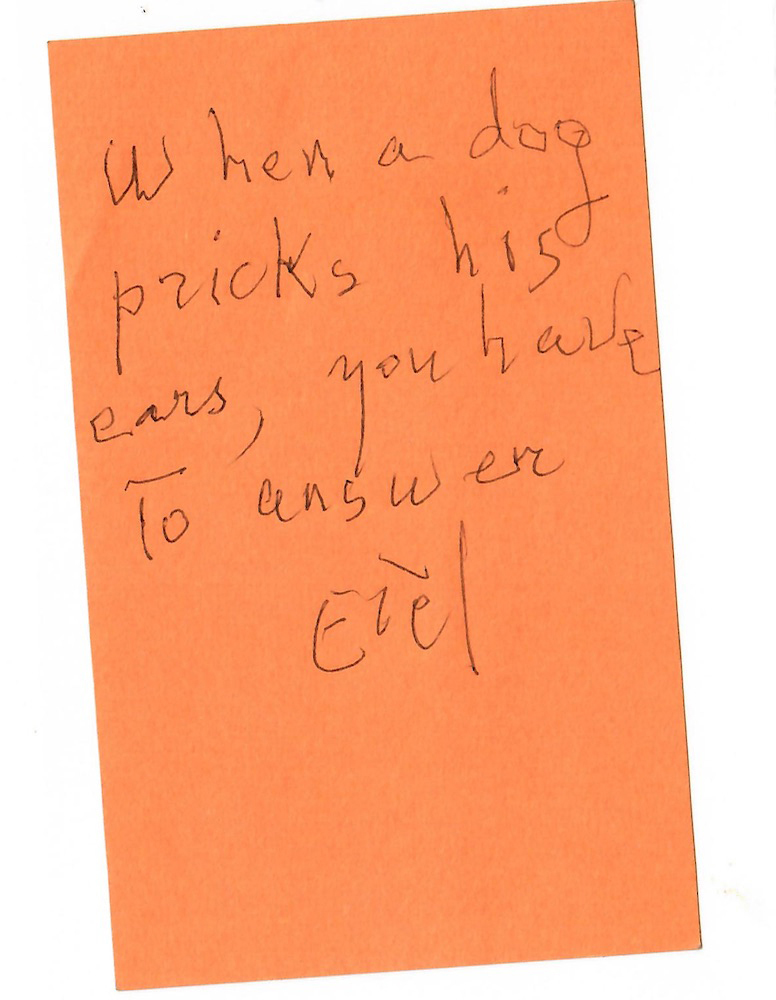 When a dog
pricks his
ears, you have
To answer
Etel